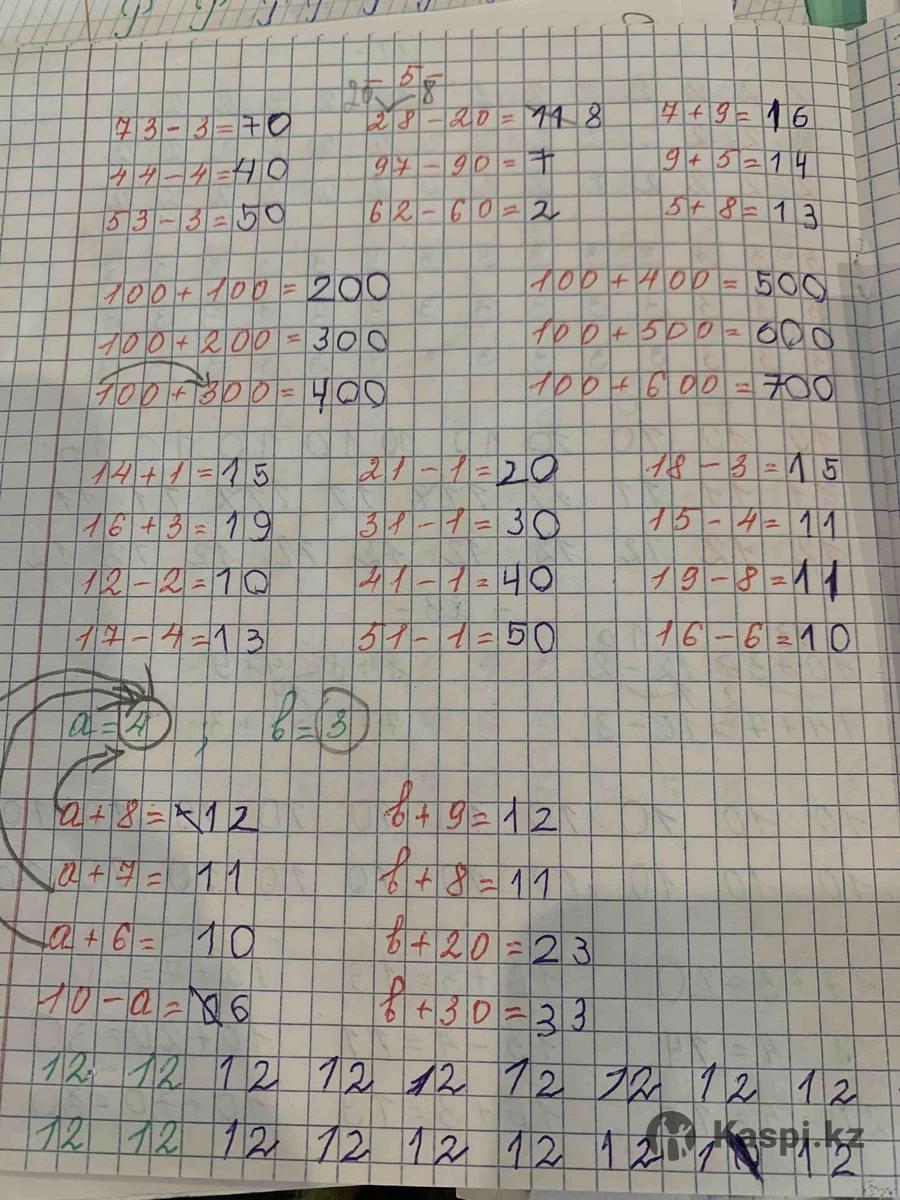 5
20 8
73-3=70 28-20=8 7+9=16
44-4=40 97-90=7 9+5=14
53-3=50 62-60=2 5+8=13
100+100=200 100+400=500
100+200=300 100+500=600
100+300=400 100+600=700
14+1=15 21-1=20 18-3=15
16+3=19 31-1=30 15-4=11
12-2=10 41-1=40 19-8=11
17-4=13 51-1=50 16-6=10
a=4 ; b=3
a+8=12 b+9=12
a+7= 11 b+8=11
a+6= 10 b+20=23
10-a=6 b+30=33
12 12 12 12 12 12 12 12 12
12 12 12 12 12 12 12 1 12
Kaspi.kz